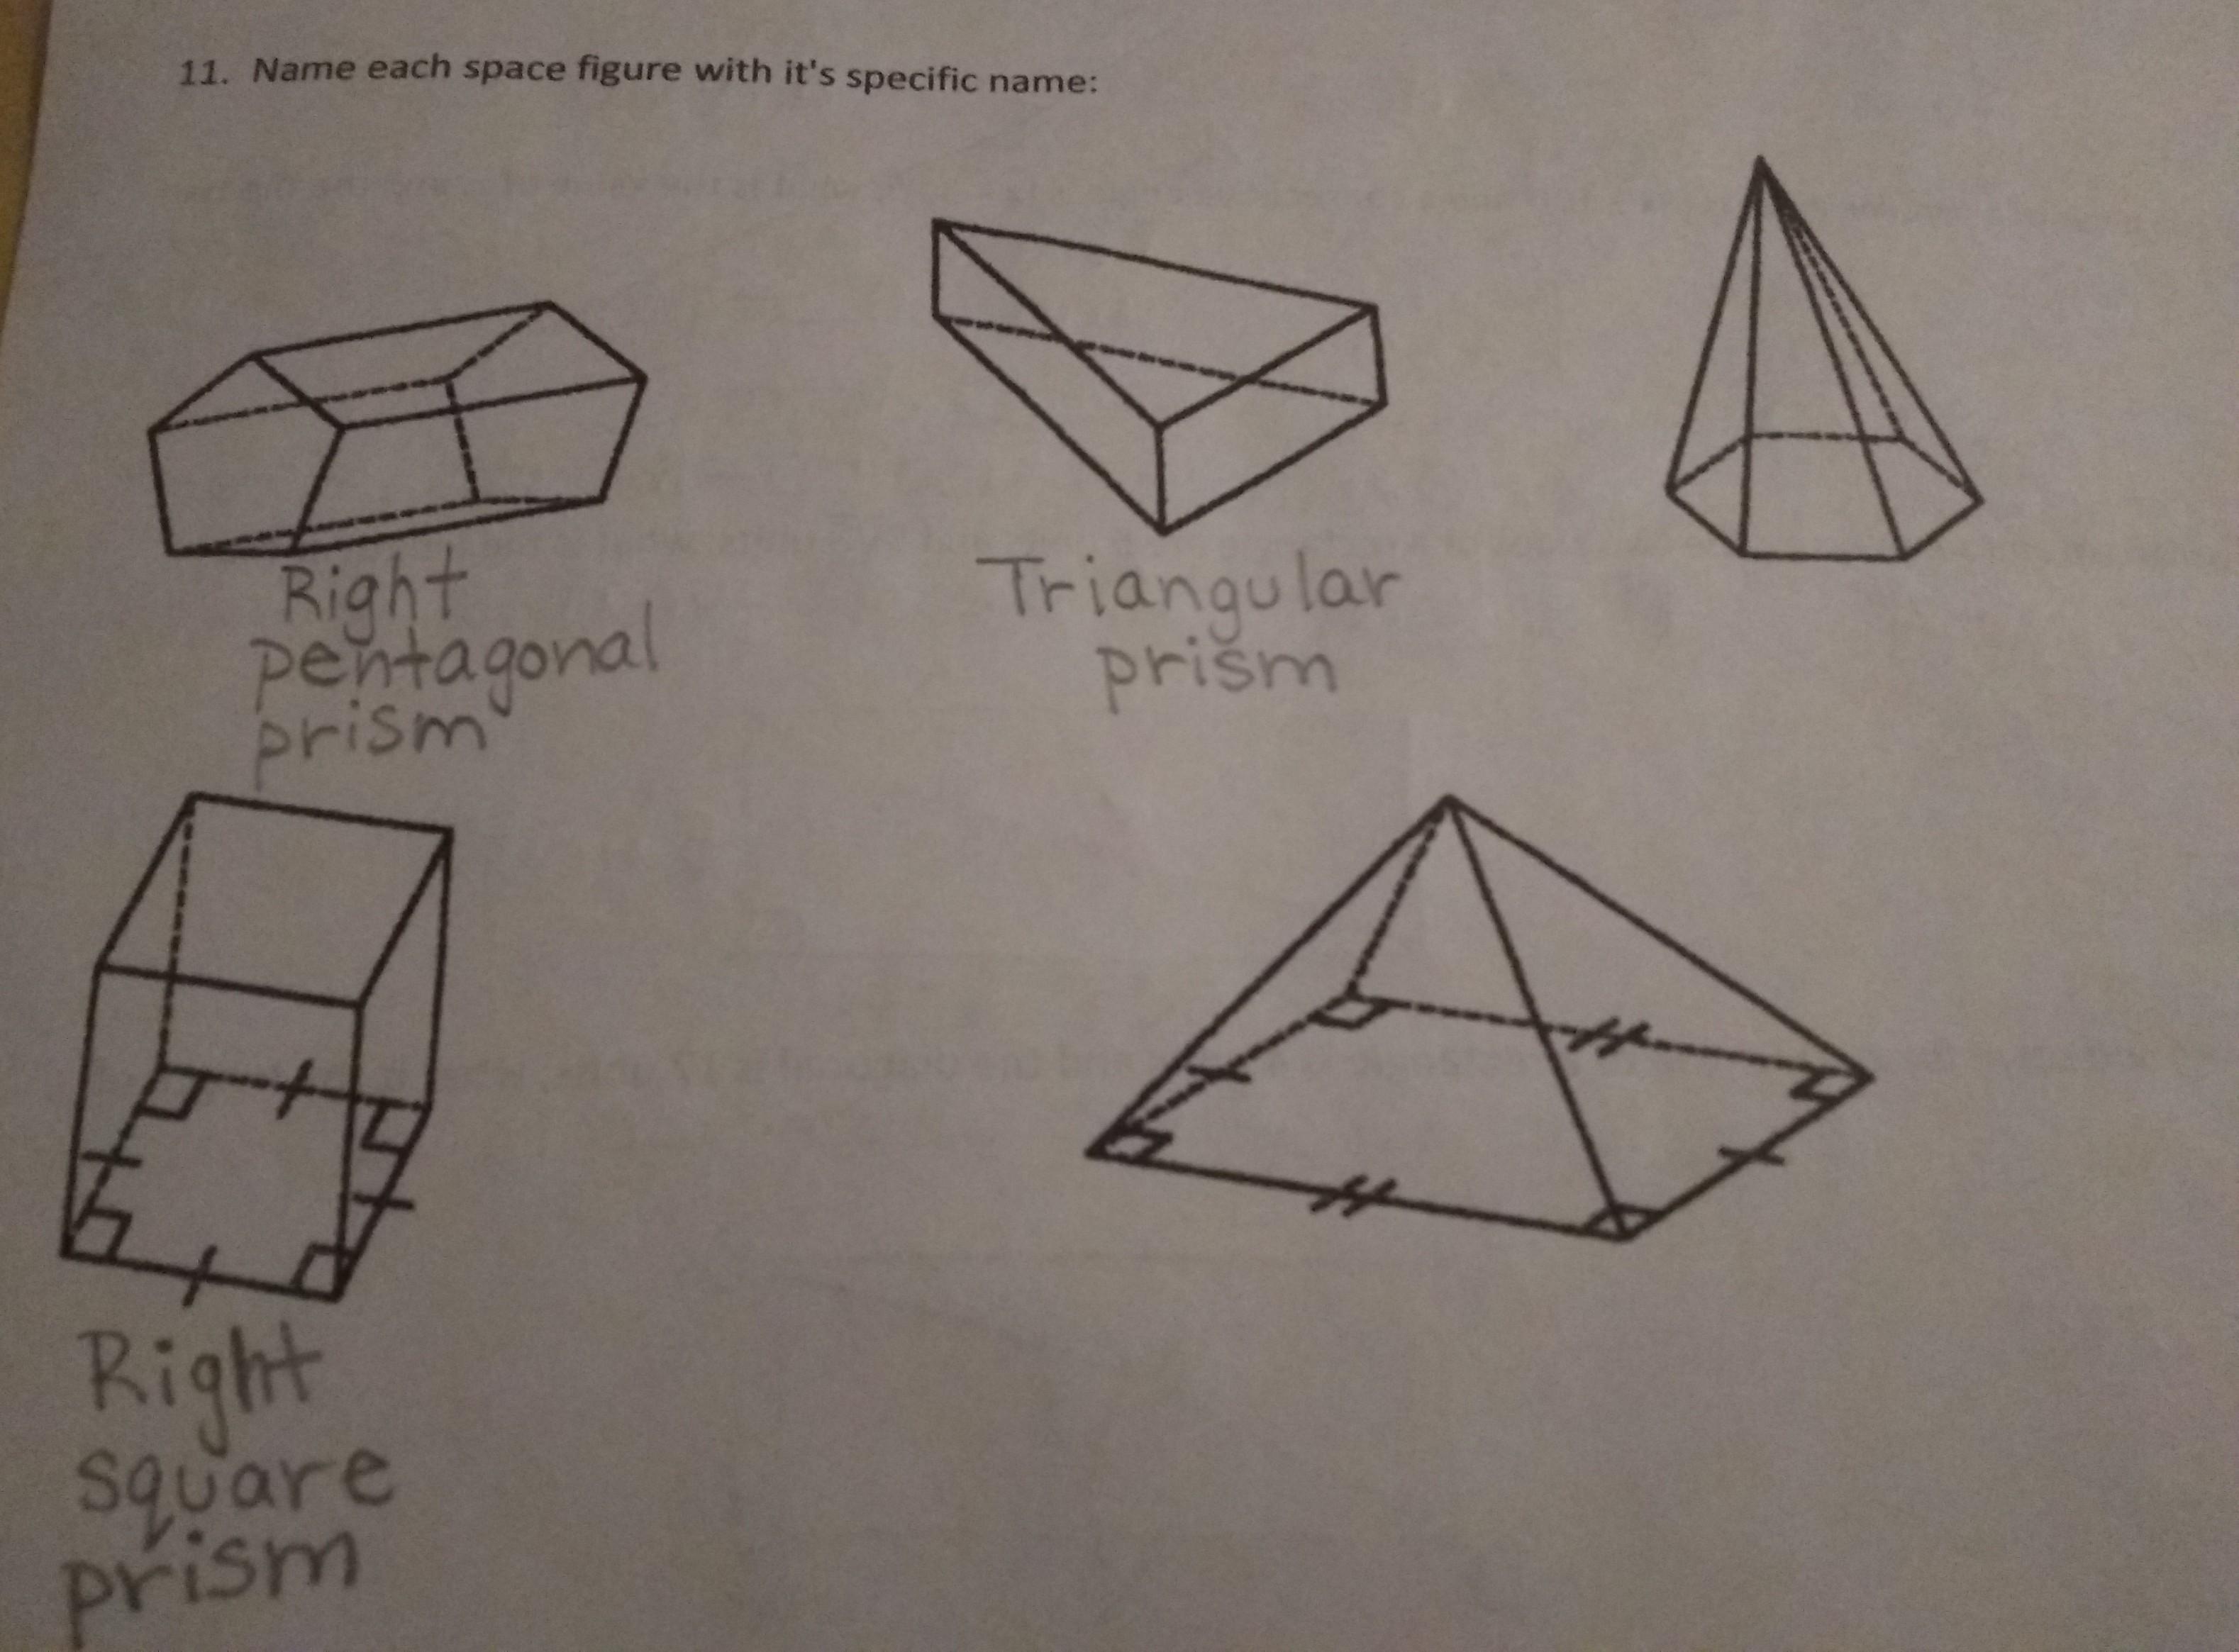 11. Name each space figure with it's specific name:
Right
pentagonal
prism
Triangular
prism
Right
square
prism